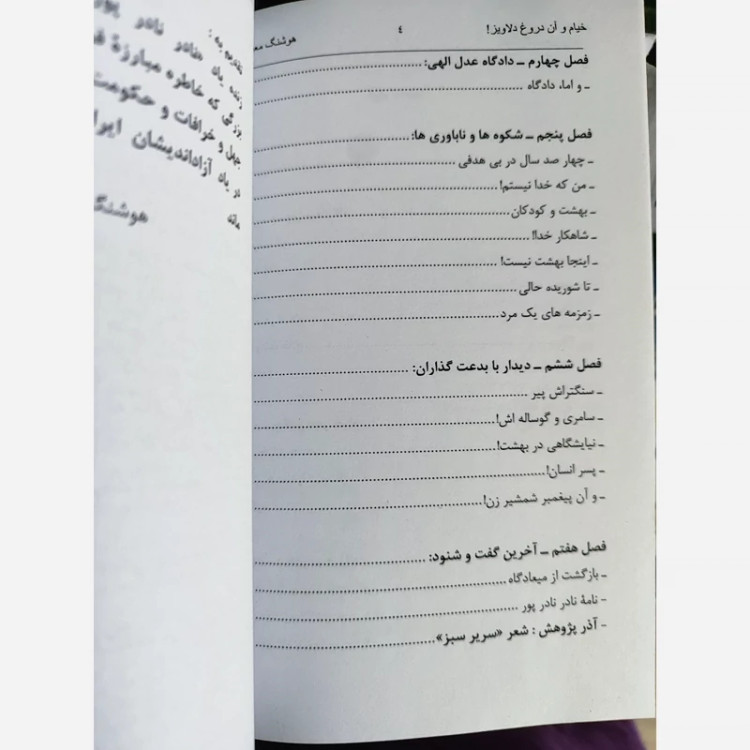 خیام و آن دروغ دلاویز! ٤ هوشنگ
فصل چهارم ــ دادگاه عدل الهی:
ـ و اما، دادگاه
فصل پنجم ــ شکوه ها و ناباوری ها:
ـ چهار صد سال در بی هدفی
ـ من که خدا نیستم!
ـ بهشت و کودکان
ـ شاهکار خدا!
ـ اینجا بهشت نیست!
ـ تا شوریده حالی
ـ زمزمه های یک مرد
فصل ششم ــ دیدار با بدعت گذاران:
ـ سنگتراش پیر
ـ سامری و گوساله اش!
ـ نیایشگاهی در بهشت!
ـ پسر انسان!
ـ و آن پیغمبر شمشیر زن!
فصل هفتم ــ آخرین گفت و شنود:
ـ بازگشت از میعادگاه
- نامهٔ نادر نادر پور
- آذر پژوهش : شعر «سریر سبز»
تقدیم به :
زنده یاد «نادر نادر
که خاطره مبارزهٔ
جهل و خرافات و حکومت
در یاد آزاداندیشان
هوشنگ